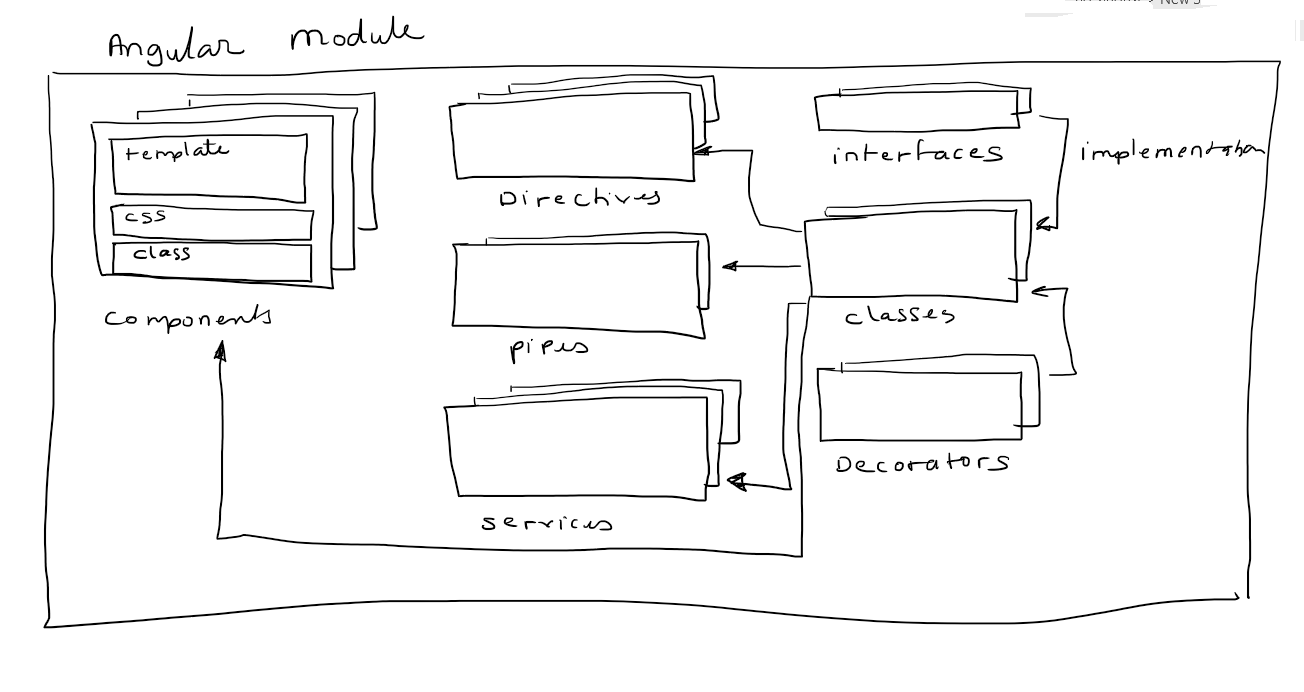 Angular module
template
css
class
components
Directives
pipes
services
interfaces
implementation
classes
Decorators